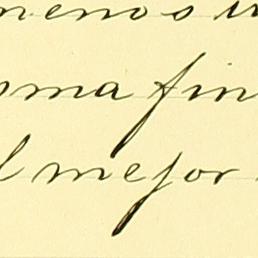 menos
ma fin
l mejor